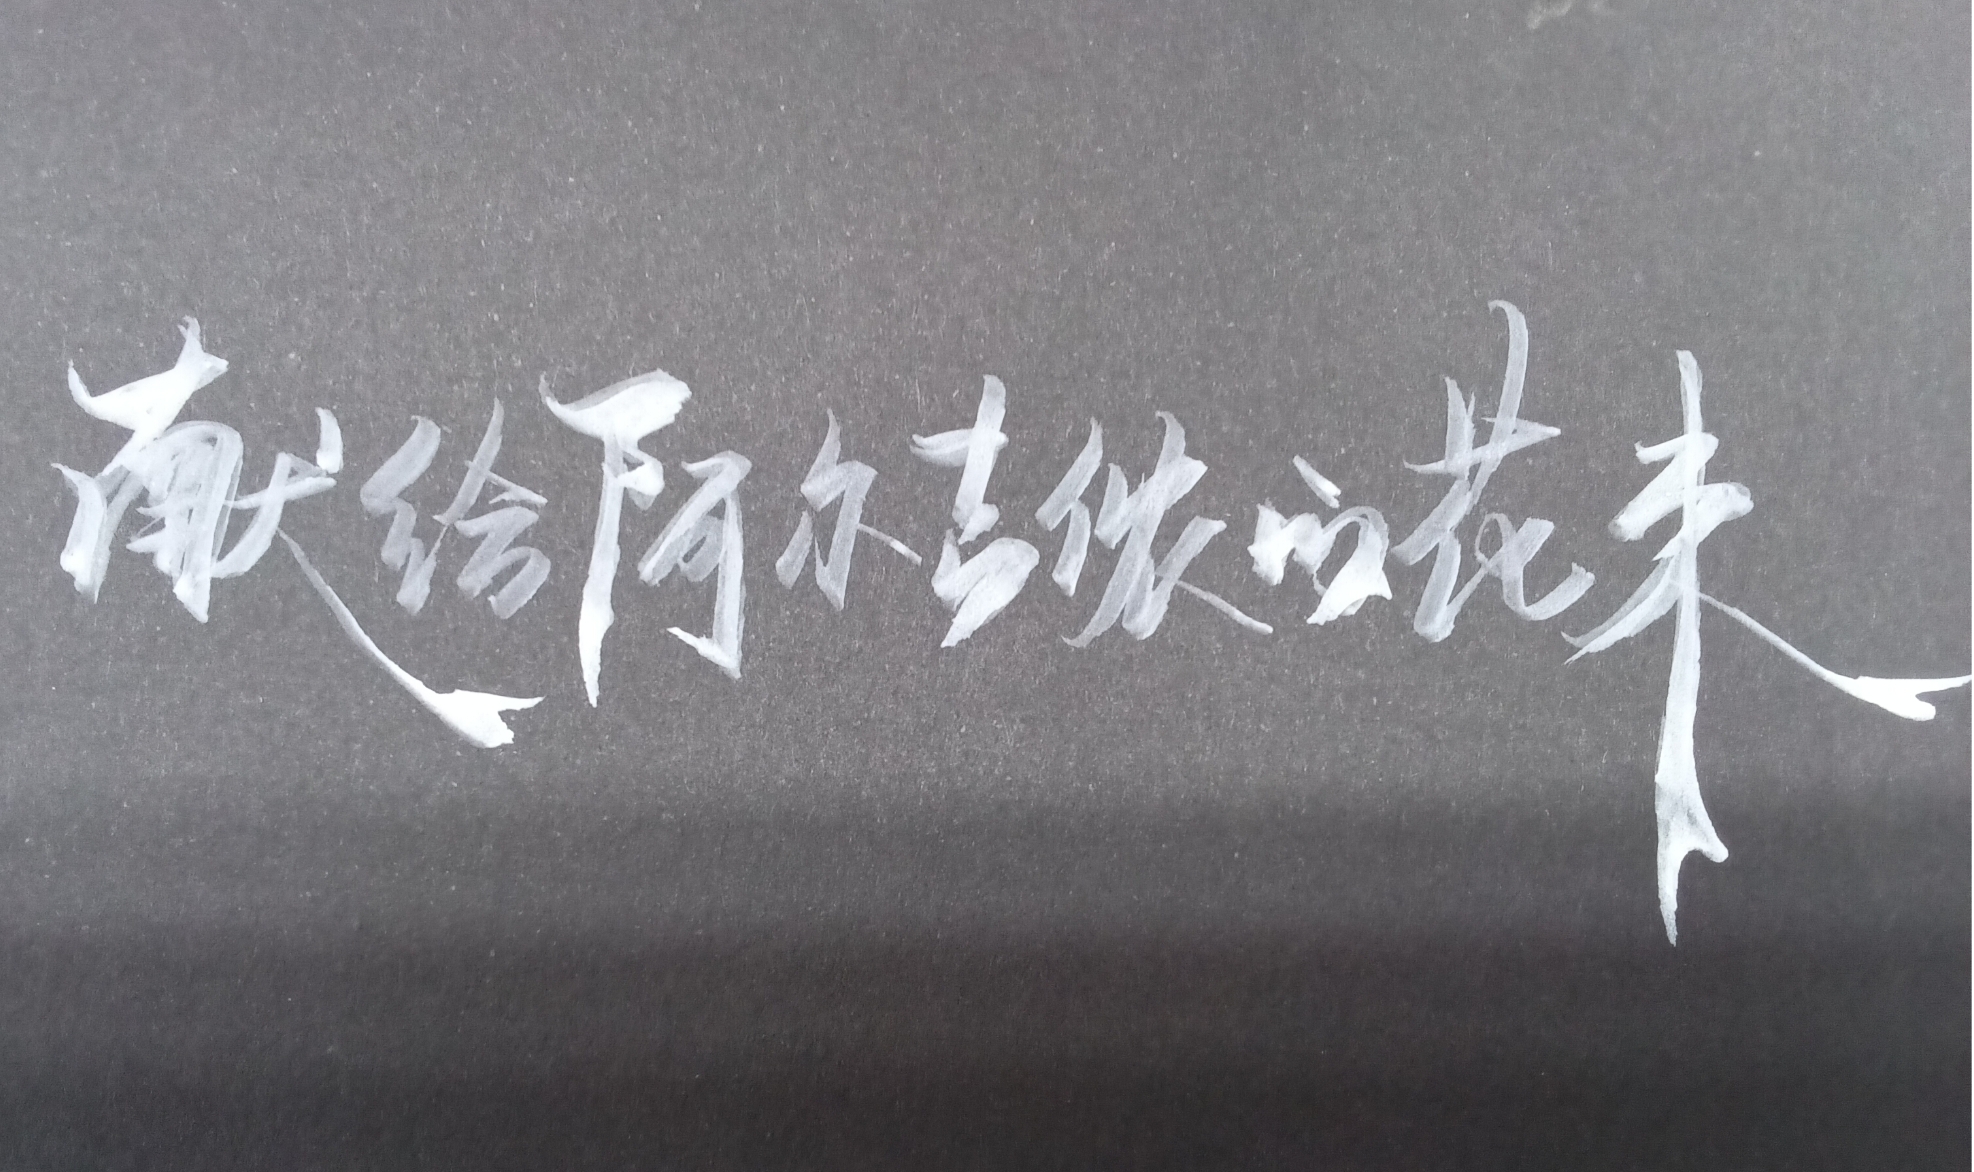 献给阿尔吉侬的花束